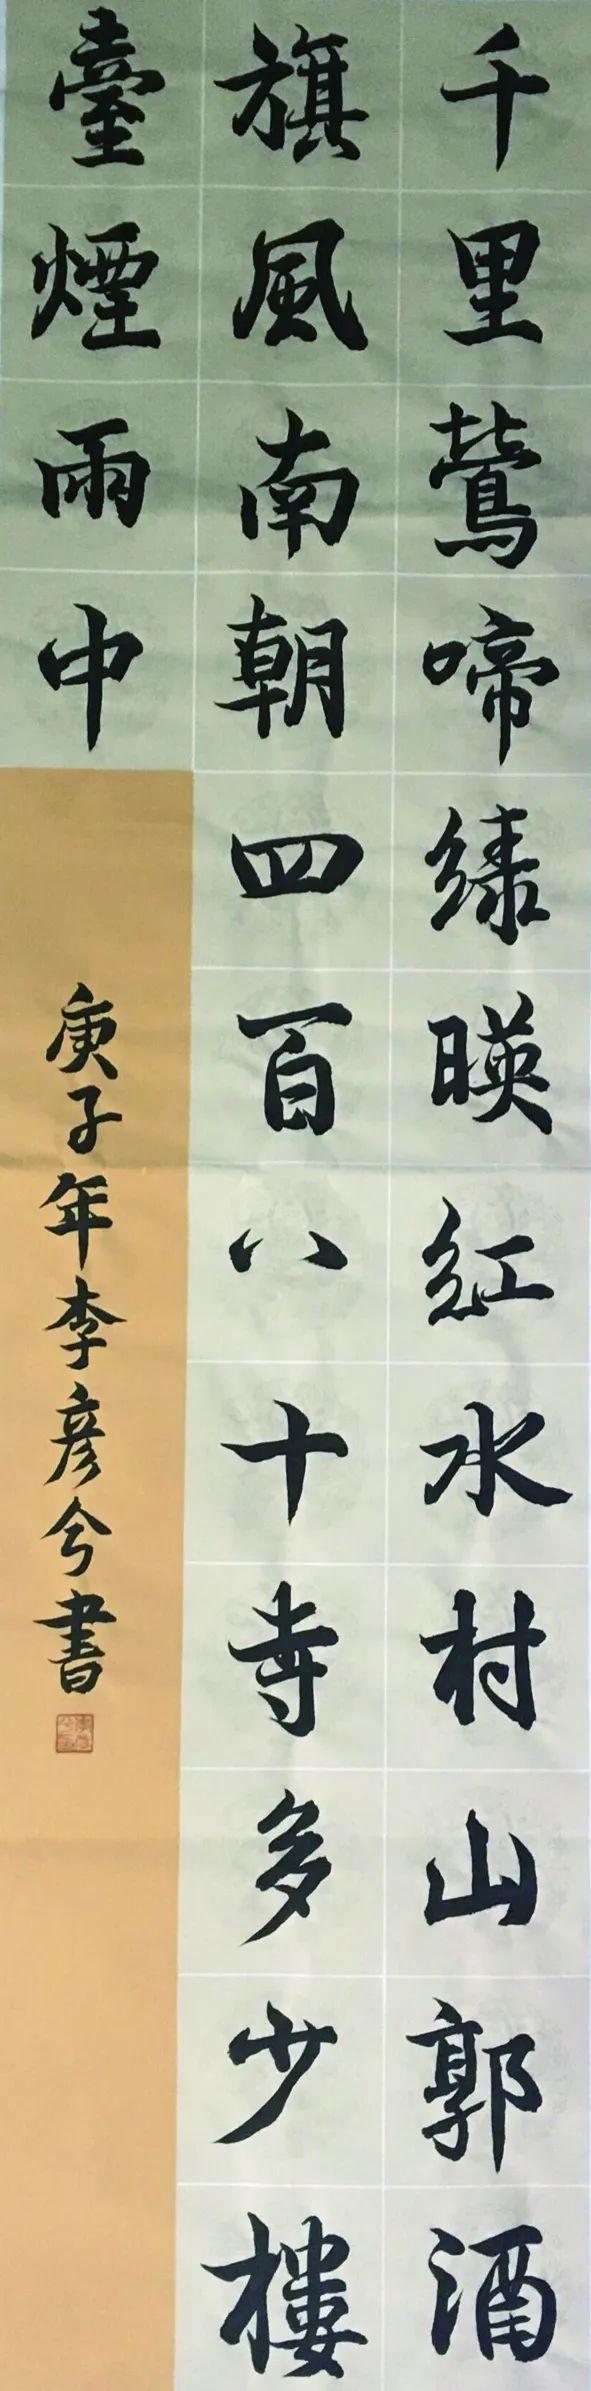 千里鶯啼綠暎紅水村山郭酒
旗風南朝四百八十寺多少樓
臺煙雨中
庚子年李彦兮書